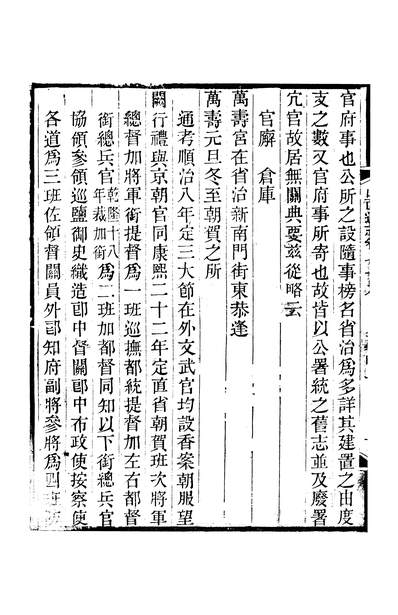 官府事也公所之設隨事榜名省治爲多詳其建置之由度
支之數又官府事所寄也故皆以公署統之舊志並及廢署
宂官故居無關典要茲從略云
官廨 倉庫
萬壽宮在省治新南門街東恭逢
萬壽元旦冬至朝賀之所
通考順治八年定三大節在外文武官均設香案朝服望
闕行禮與京朝官同康熙二十二年定直省朝賀班次將軍
總督加將軍銜提督爲一班巡撫都統提督加左右都督
銜總兵官乾隆十八年裁加銜爲二班加都督同知以下銜總兵官
協領參領巡鹽御史織造郎中督關郎中布政使按察使
各道爲三班佐領督關員外郎知府副將參將爲四班